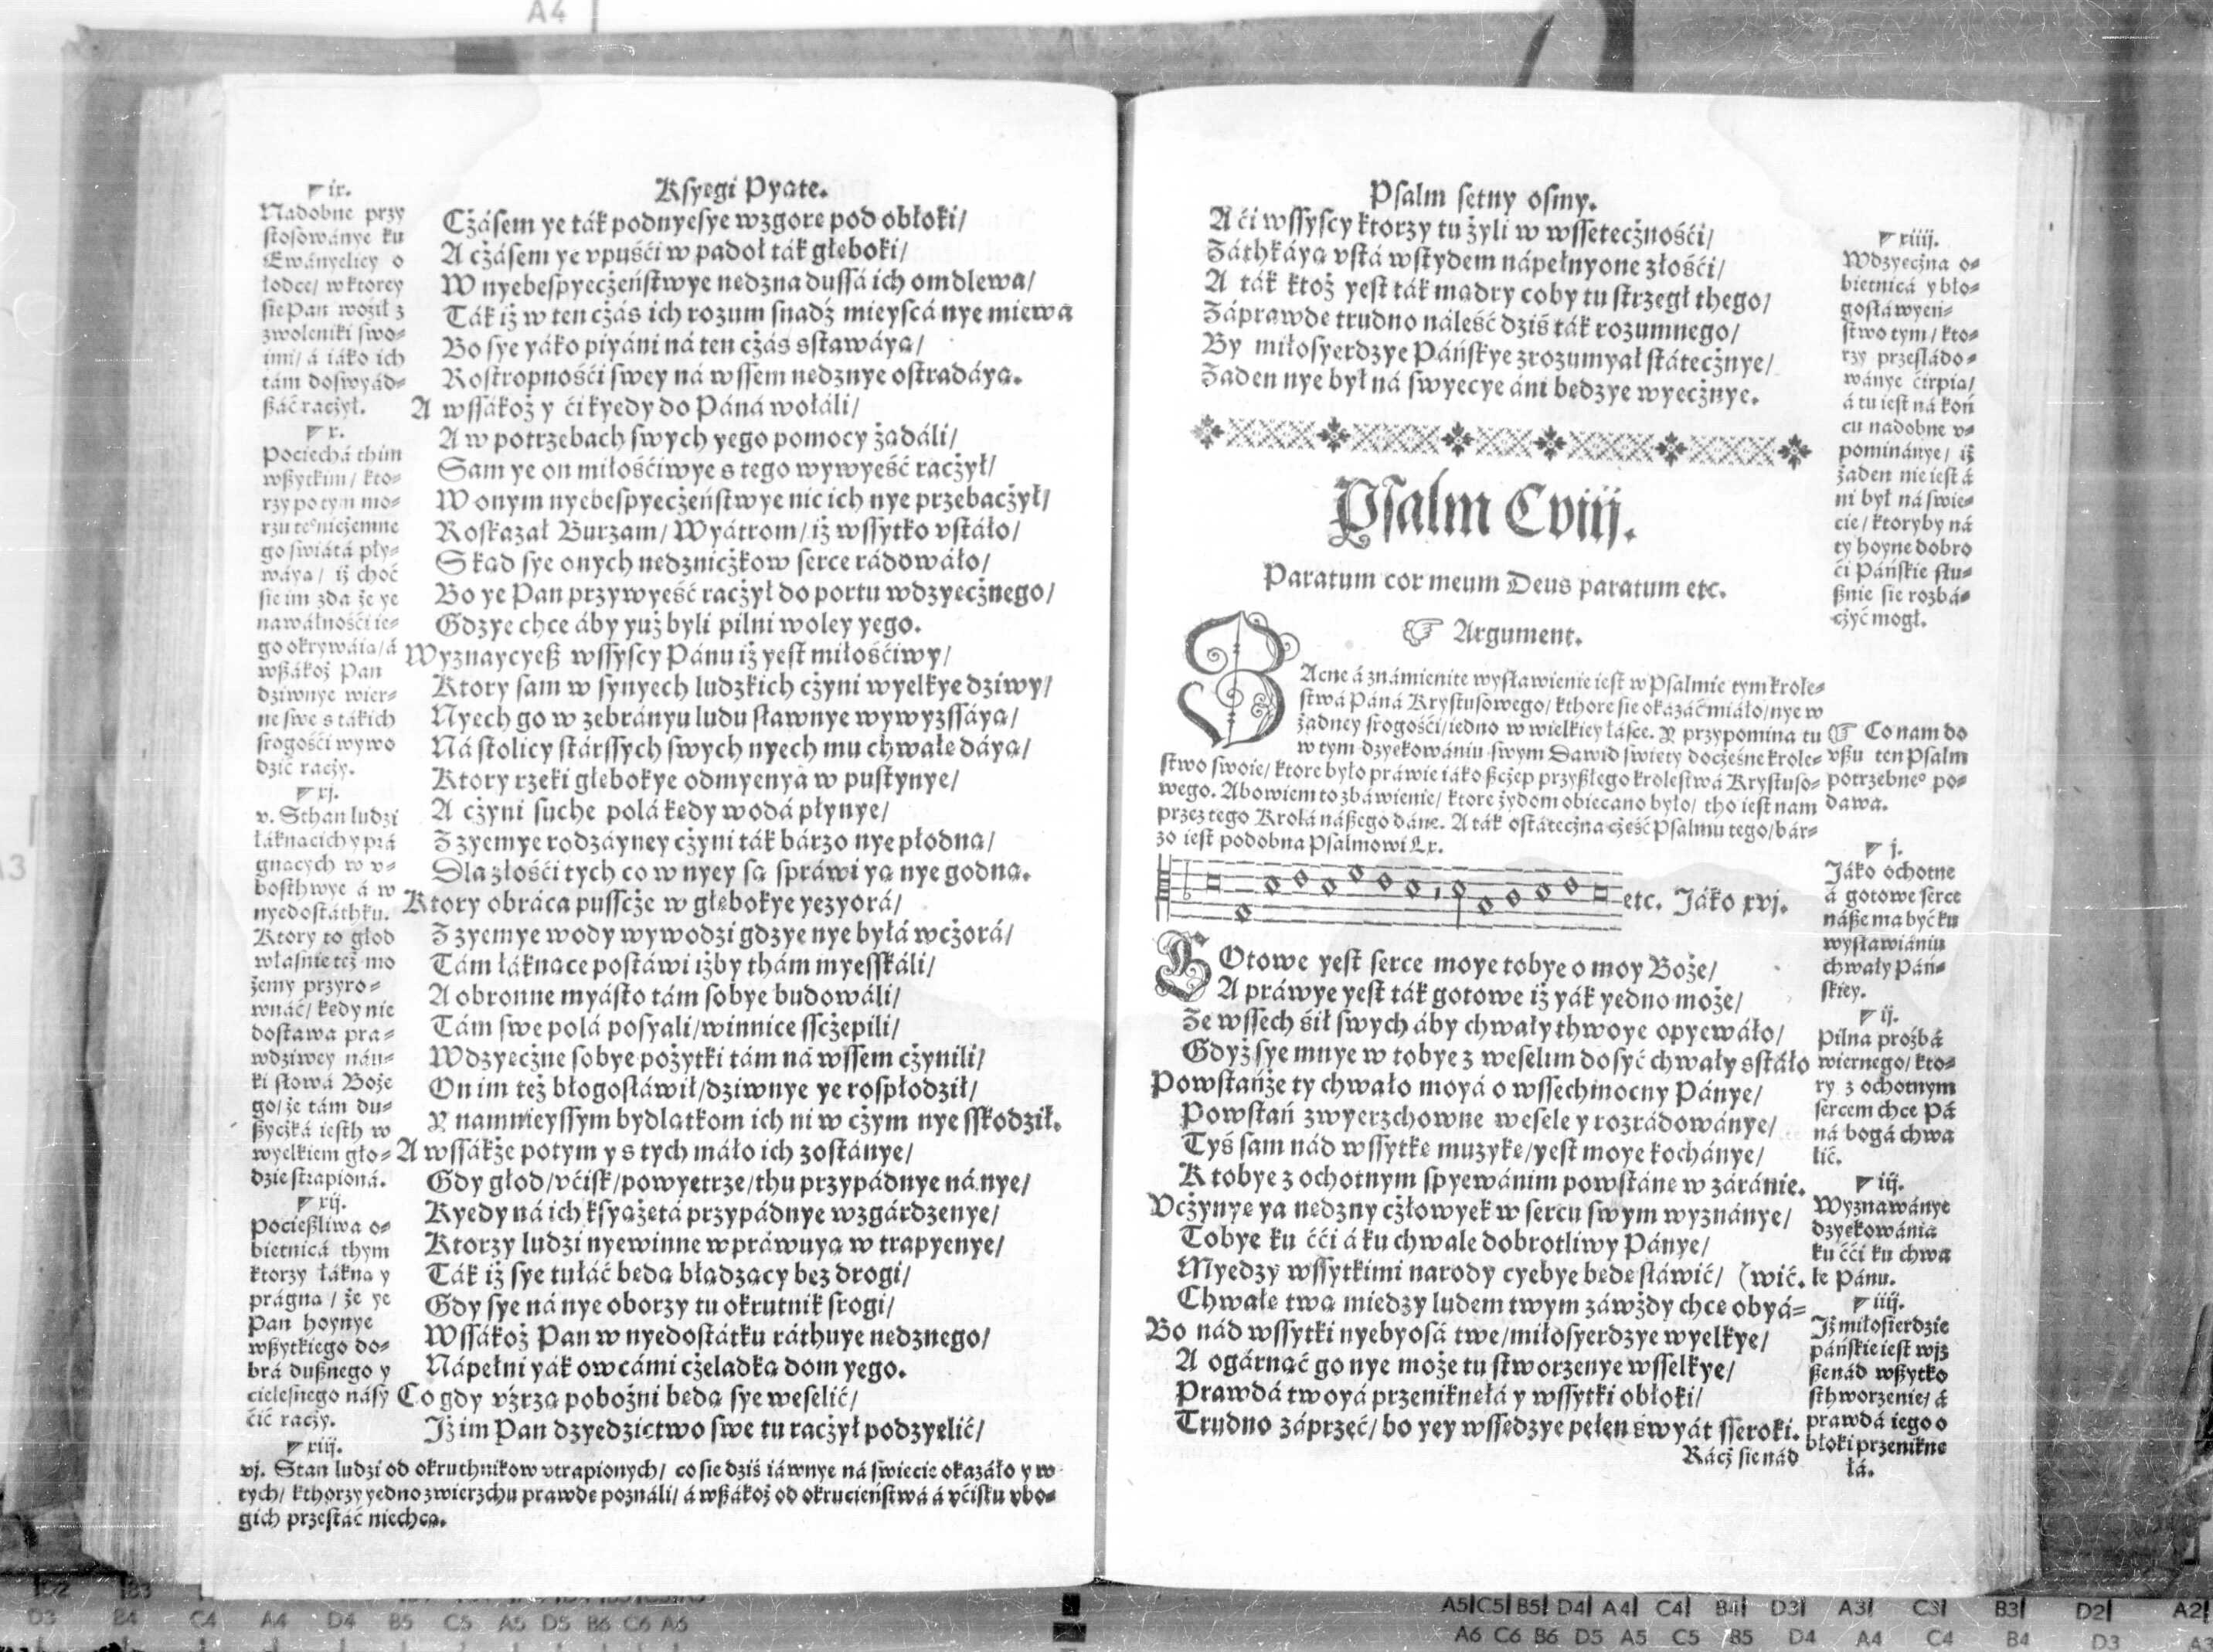 Ksyegi Pyate.
Cżásem ye ták podnyesye wzgore pod obłoki/
A cżásem ye vpuśći w padoł ták głeboki/
W nyebespyecżeństwye nedzna dussá ich omdlewa/
Ták iż w ten cżás ich rozum snadź mieyscá nye miewa
Bo sye yáko piyáni ná ten cżás sstawáya/
Rostropnośći swey ná wssem nedznye ostradáya.
A wssákoż y ći kyedy do Páná wołáli/
A w potrzebach swych yego pomocy żadáli/
Sam ye on miłośćiwye s tego wywyeść racżył/
W onym nyebespyecżeństwye nic ich nye przebacżył/
Roskazał Burzam/ Wyátrom/ iż wssytko vstáło/
Skad sye onych nedznicżkow serce rádowáło/
Bo ye Pan przywyeść racżył do portu wdzyecżnego/
Gdzye chce áby yuż byli pilni woley yego.
Wyznaycyeß wssyscy Pánu iż yest miłośćiwy/
Ktory sam w synyech ludzkich cżyni wyelkye dziwy/
Nyech go w zebrányu ludu sławnye wywyzssáya/
Ná stolicy stárssych swych nyech mu chwałe dáya/
Ktory rzeki głebokye odmyenya w pustynye/
A cżyni suche polá kedy wodá płynye/
Z zyemye rodzáyney cżyni ták bárzo nye płodna/
Dla złośći tych co w nyey sa spráwi ya nye godna.
Ktory obráca pusscże w głebokye yezyorá/
Z zyemye wody wywodzi gdzye nye byłá wcżorá/
Tám łáknace postáwi iżby thám myesskáli/
A obronne myásto tám sobye budowáli/
Tám swe polá posyali/ winnice sscżepili/
Wdzyecżne sobye pożytki tám ná wssem cżynili/
On im też błogosłáwił/ dziwnye ye rospłodził/
Y namnieyssym bydlatkom ich ni w cżym nye sskodził.
A wssákże potym y s tych máło ich zostánye/
Gdy głod/ vćisk/ powyetrze/ thu przypádnye ná nye/
Kyedy ná ich ksyażetá przypádnye wzgárdzenye/
Ktorzy ludzi nyewinne wpráwuya w trapyenye/
Ták iż sye tułáć beda bładzacy bez drogi/
Gdy sye ná nye oborzy tu okrutnik srogi/
Wssákoż Pan w nyedostátku ráthuye nedznego/
Nápełni yák owcámi cżeladka dom yego.
Co gdy vźrza pobożni beda sye weselić/
Iż im Pan dzyedzictwo swe tu racżył podzyelić/
ix.
Nadobne przy
stosowánye ku
Ewányelicy o
łodce/ w ktorey
sie Pan woźił z
zwoleniki swo-
imi/ á iáko ich
tám doswyád-
ßáć racżył.
x.
Pociechá thim
wßytkim/ kto-
rzy po tym mo-
rzu te° nicżemne
go swiátá pły-
wáya/ iż choć
sie im zda że ye
nawáłnośći ie-
go okrywáia/ á
wßákoż Pan
dziwnye wier-
ne swe s tákich
srogośći wywo
dzić racży.
xj.
v. Sthan ludzi
łáknacich y prá
gnacych w v-
bosthwye á w
nyedostáthku.
Ktory to głod
własnie też mo
żemy przyro-
wnáć/ kedy nie
dostawa pra-
wdziwey náu-
ki słowá Boże
go/ że tám du-
ßycżká iesth w
wyelkiem gło-
dzie strapioná.
xij.
Pocießliwa o-
bietnicá thym
ktorzy łákna y
prágna/ że ye
Pan hoynye
wßytkiego do-
brá dußnego y
cielesnego násy
ćić racży.
xiij.
vj. Stan ludzi od okruthnikow vtrapionych/ co sie dziś iáwnye ná swiecie okazáło y w
tych/ kthorzy yedno zwierzchu prawde poználi/ á wßákoż od okrucieństwá á vćisku vbo-
gich przestáć niechca.
Psalm setny osmy.
A ći wssyscy ktorzy tu żyli w wssetecżnośći/
Záthkáya vstá wstydem nápełnyone złośći/
A ták ktoż yest ták madry coby tu strzegł thego/
Záprawde trudno náleść dziś ták rozumnego/
By miłosyerdzye Páńskye zrozumyał státecżnye/
Zaden nye był ná swyecye áni bedzye wyecżnye.
xiiij.
Wdzyecżna o-
bietnicá y bło-
gosłáwyeń-
stwo tym/ kto-
rzy przesládo-
wánye ćirpia/
á tu iest ná koń
cu nadobne v-
pominánye/ iż
żaden nie iest á
ni był ná swie-
cie/ ktoryby ná
ty hoyne dobro
ći Páńskie słu-
ßnie sie rozbá-
cżyć mogł.
Psalm Cviij.
Paratum cor meum Deus paratum etc.
Argument.
Zacne á známienite wysławienie iest w Psalmie tym krole-
stwá Páná Krystusowego/ kthore sie okazáć miáło/ nye w
żadney srogośći/ iedno w wielkiey łásce. Y przypomina tu
w tym dzyekowániu swym Dawid swiety docżeśne krole-
stwo swoie/ ktore było práwie iáko ßcżep przyßłego krolestwá Krystuso-
wego. Abowiem to zbáwienie/ ktore żydom obiecano było/ tho iest nam
przez tego Krolá náßego dáne. A ták ostátecżna cżeść Psalmu tego/ bár-
zo iest podobna Psalmowi Lx.
Co nam do
vßu ten Psalm
potrzebne° po-
dawa.
etc. Jáko xvj.
GOtowe yest serce moye tobye o moy Boże/
A práwye yest ták gotowe iż yák yedno może/
Ze wssech śił swych áby chwały thwoye opyewáło/
Gdyż sye mnye w tobye z weselim dosyć chwały sstáło
Powstáńże ty chwało moyá o wssechmocny Pánye/
Powstań zwyerzchowne wesele y rozrádowánye/
Tyś sam nád wssytke muzyke/ yest moye kochánye/
K tobye z ochotnym spyewánim powstáne w záránie.
Vcżynye ya nedzny cżłowyek w sercu swym wyznánye/
Tobye ku ććí á ku chwale dobrotliwy Pánye/
Myedzy wssytkimi narody cyebye bede sławić/ (wić.
Chwałe twa miedzy ludem twym záwżdy chce obyá-
Bo nád wssytki nyebyosá twe/ miłosyerdzye wyelkye/
A ogárnąć go nye może tu stworzenye wsselkye/
Prawdá twoyá przeniknełá y wssytki obłoki/
Trudno záprzęć/ bo yey wssedzye pełen swyát sseroki.
Rácż sie nád
j.
Jáko ochotne
á gotowe serce
náße ma być ku
wysławiániu
chwały Páń-
skiey.
ij.
Pilna prożbá
wiernego/ kto-
ry z ochotnym
sercem chce Pá
ná bogá chwa
lić.
iij.
Wyznawánye
dzyekowánia
ku ććí ku chwa
le Pánu.
iiij.
Iż miłosierdzie
páńskie iest wjz
ße nád wßytko
sthworzenie/ á
prawdá iego o
błoki przenikne
łá.